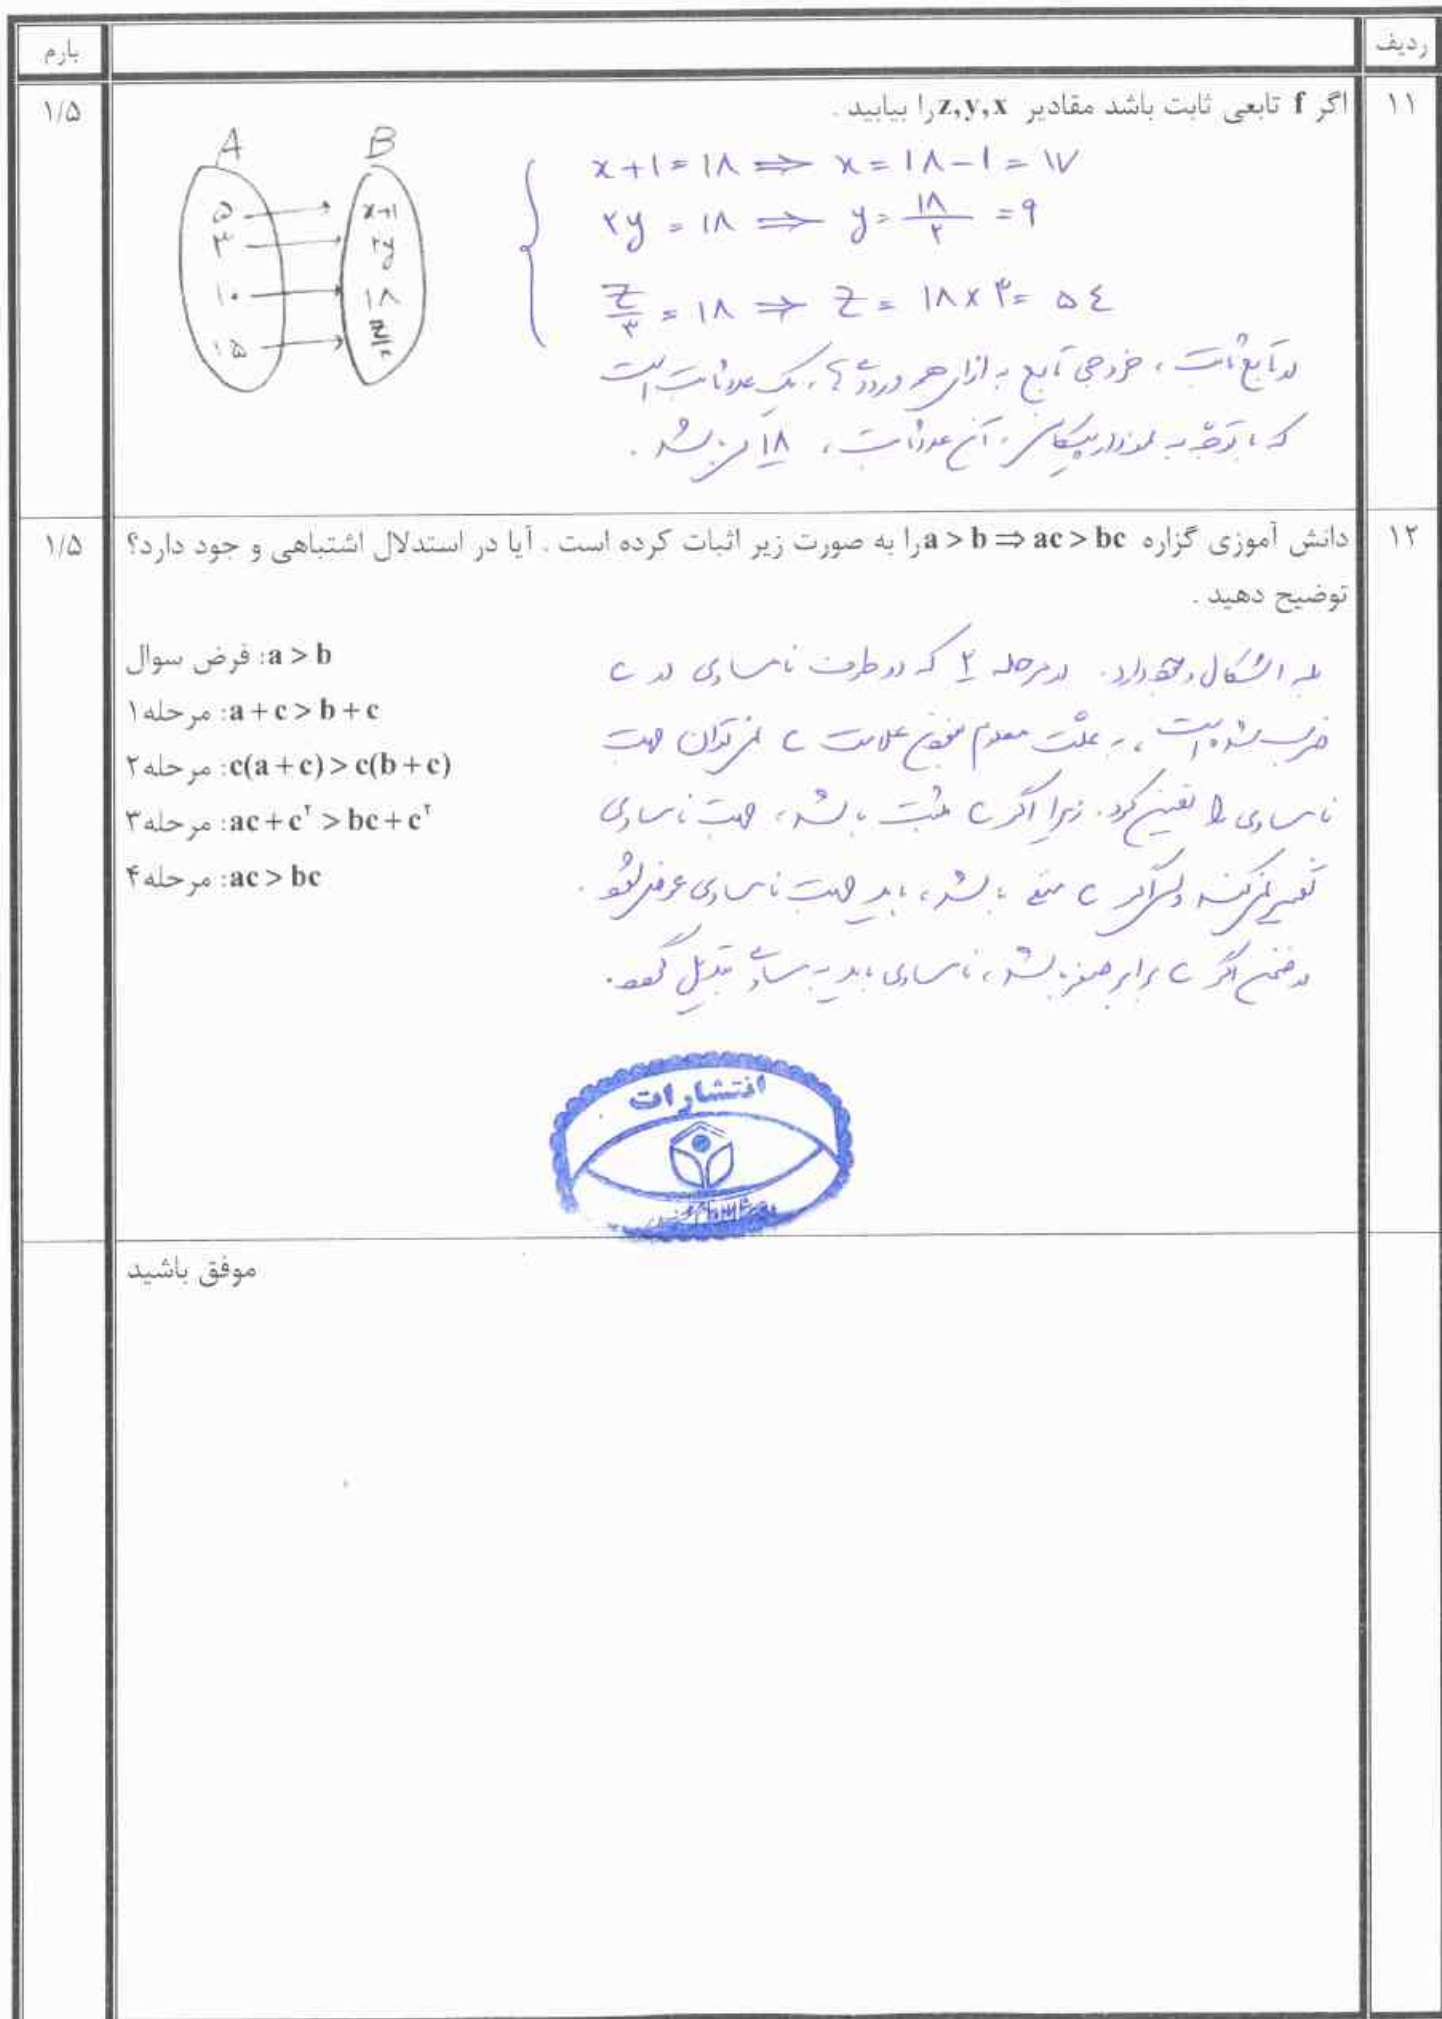 ردیف
بارم
۱۱
اگر f تابعی ثابت باشد مقادیر z,y,x را بیابید .
۱/۵
A B
۵ x+۱
۳ ۲y
۱۰ ۱۸
۱۵ z/۳
x+۱ = ۱۸ ⇒ x = ۱۸-۱ = ۱۷
۲y = ۱۸ ⇒ y = ۱۸/۲ = ۹
z/۳ = ۱۸ ⇒ z = ۱۸×۳ = ۵۴
در تابع ثابت ، خروجی تابع به ازای همه ورودی ها ، یک عدد ثابت است
که با توجه به نمودار پیکانی ، آن عدد ثابت ، ۱۸ می باشد .
۱۲
دانش آموزی گزاره a > b ⇒ ac > bc را به صورت زیر اثبات کرده است . آیا در استدلال اشتباهی و جود دارد؟
۱/۵
توضیح دهید .
a > b: فرض سوال
a + c > b + c: مرحله۱
c(a + c) > c(b + c): مرحله۲
ac + c² > bc + c²: مرحله۳
ac > bc: مرحله۴
بله اشکال وجود دارد. در مرحله ۲ که دو طرف نامساوی در c
ضرب شده است ، به علت معلوم نبودن علامت c نمی توان جهت
نامساوی را تعیین کرد. زیرا اگر c مثبت باشد ، جهت نامساوی
تغییر نمی کند ولی اگر c منفی باشد ، باید جهت نامساوی عوض شود .
در ضمن اگر c برابر صفر باشد ، نامساوی باید به تساوی تبدیل شود.
انتشارات
موفق باشید